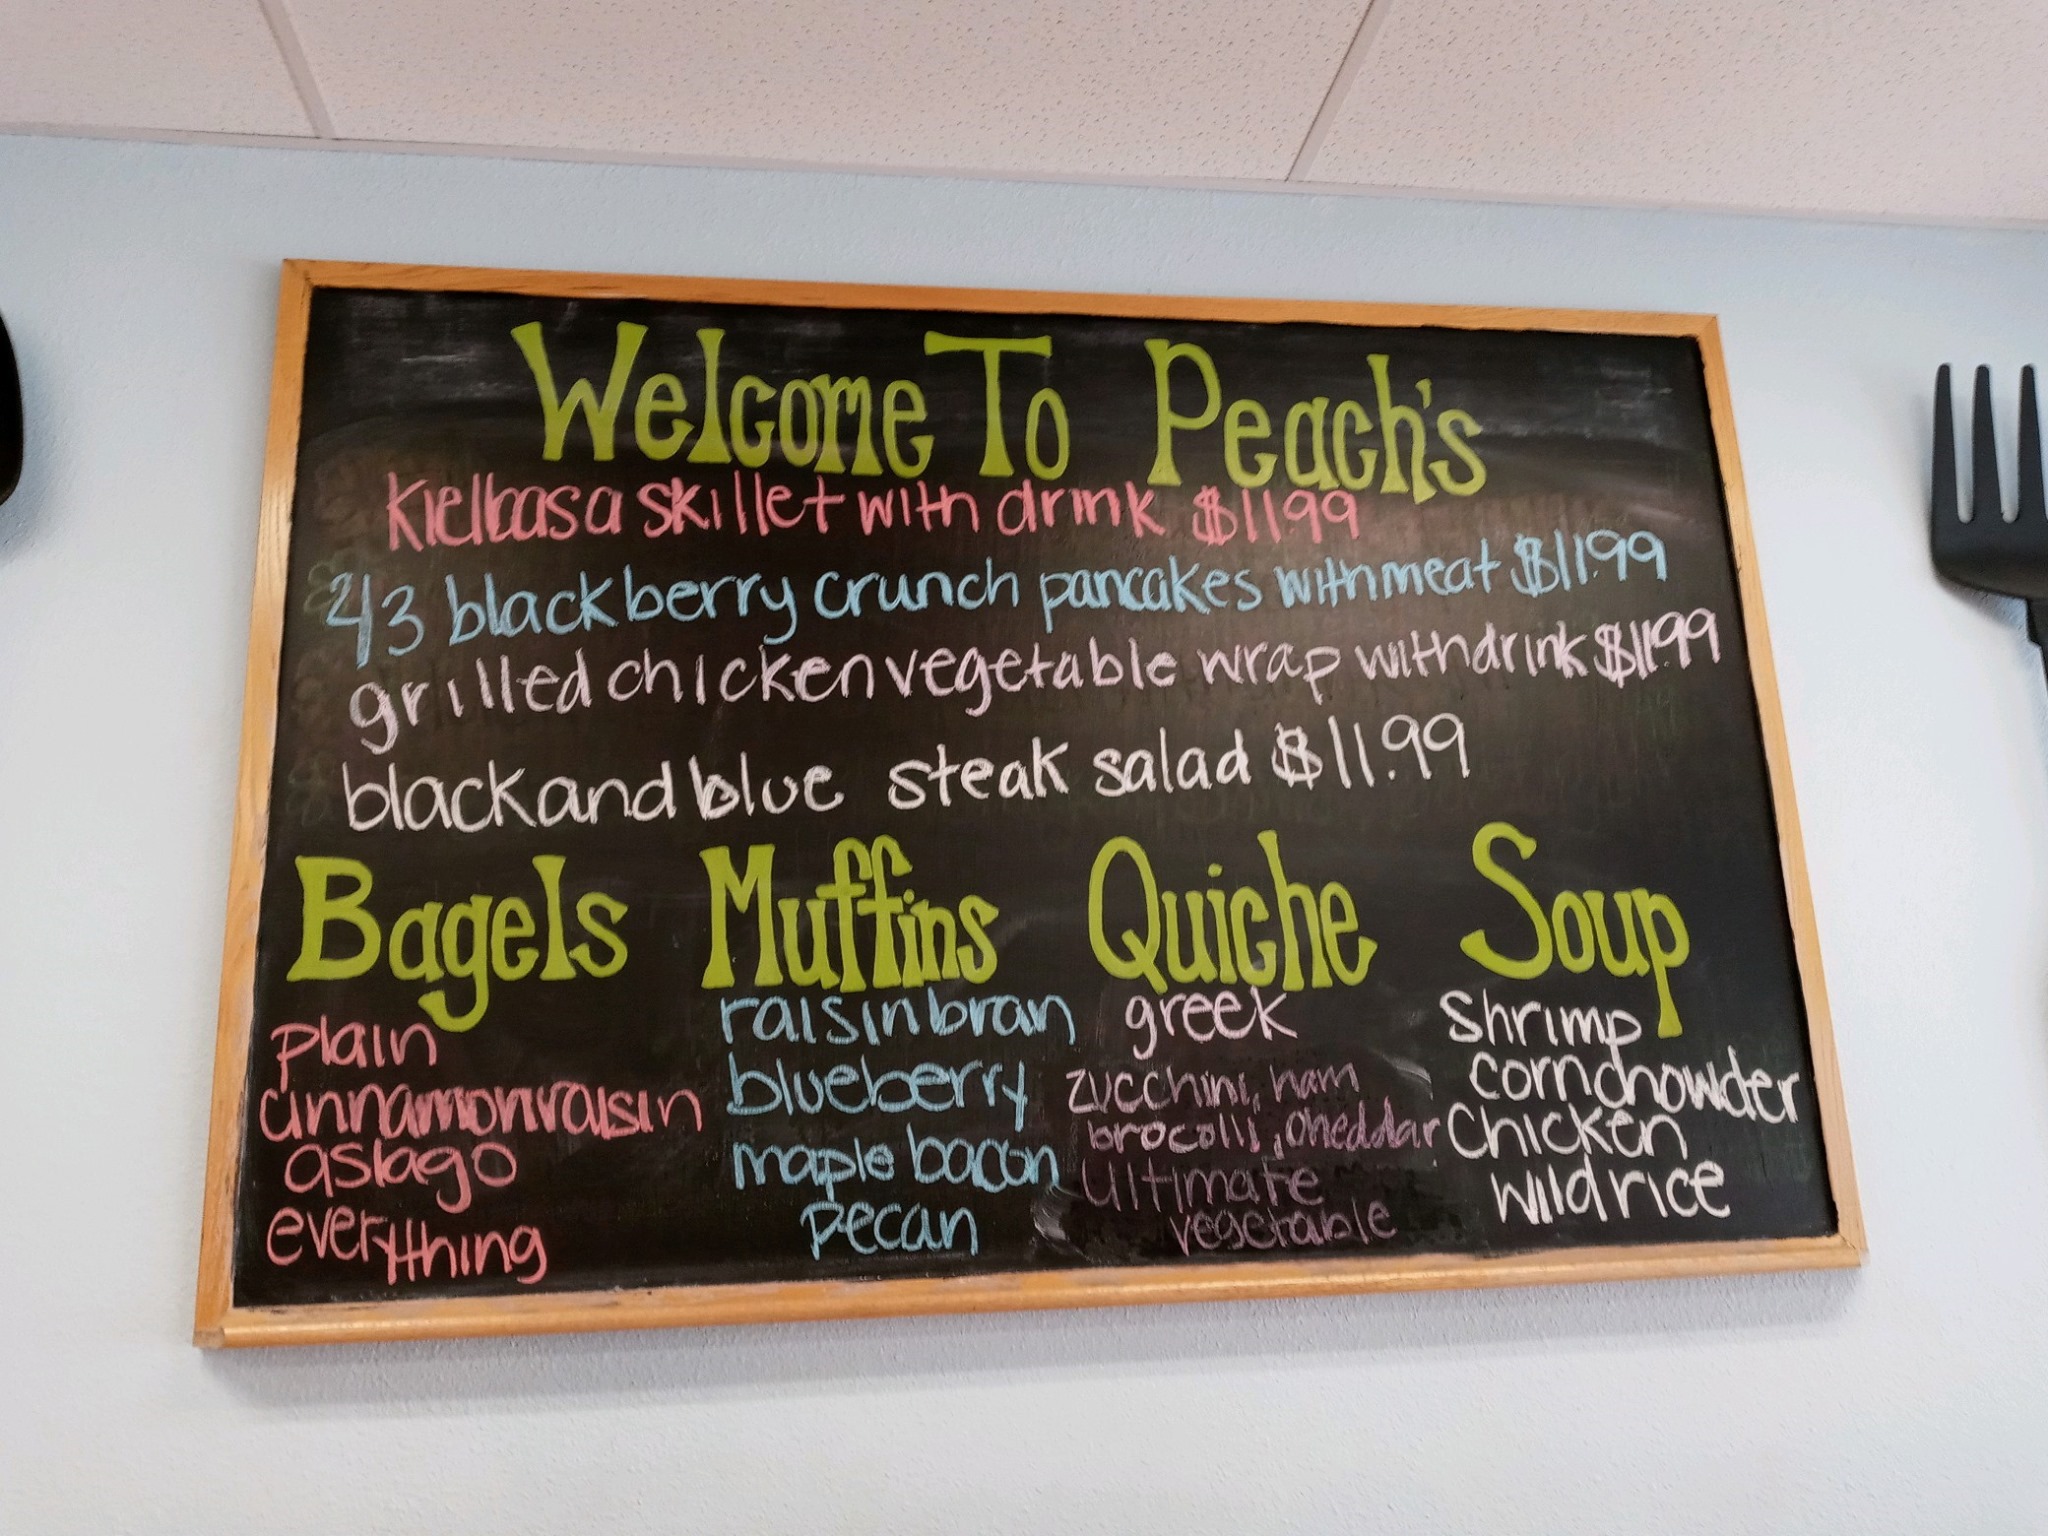 Welcome To Peach's
Kielbasa skillet with drink $11.99
2/3 blackberry crunch pancakes with meat $11.99
grilled chicken vegetable wrap with drink $11.99
black and blue steak salad $11.99
Bagels Muffins Quiche Soup
plain raisin bran greek shrimp
cinnamon raisin blueberry zucchini, ham corn chowder
asiago maple bacon brocolli, cheddar Chicken
everything pecan Ultimate wild rice
vegetable